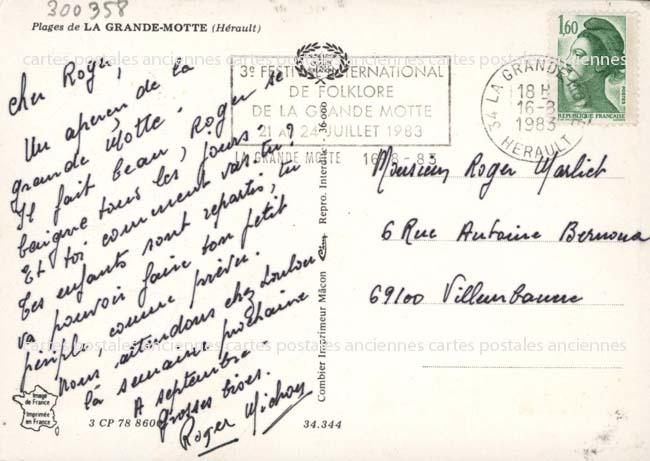 300 358
Plages de LA GRANDE-MOTTE (Hérault)
cher Roger,
Un aperçu de la
grande Motte.
Il fait beau, Roger se
baigne tous les jours.
Et toi comment vas tu?
Les enfants sont repartis, tu
va pouvoir faire ton petit
périple, comme prévu.
Nous attendons chez
la semaine prochaine
A septembre.
Grosses bises.
Roger
Image
de France
Imprimée
en France
3 CP 78 860
34.344
Combier Imprimeur Mâcon Repro. Interdite
3e FESTIVAL INTERNATIONAL
DE FOLKLORE
DE LA GRANDE MOTTE
21 AU 24 JUILLET 1983
LA GRANDE MOTTE 16-8-83
34 LA GRANDE MOTTE
18 H
16-8
1983
HERAULT
1,60
POSTES
REPUBLIQUE FRANÇAISE
Monsieur Roger Marliet
6 Rue Antoine
69100 Villeurbanne
cartes postales anciennes cartes postales anciennes cartes postales anciennes
cartes postales anciennes cartes postales anciennes cartes postales anciennes